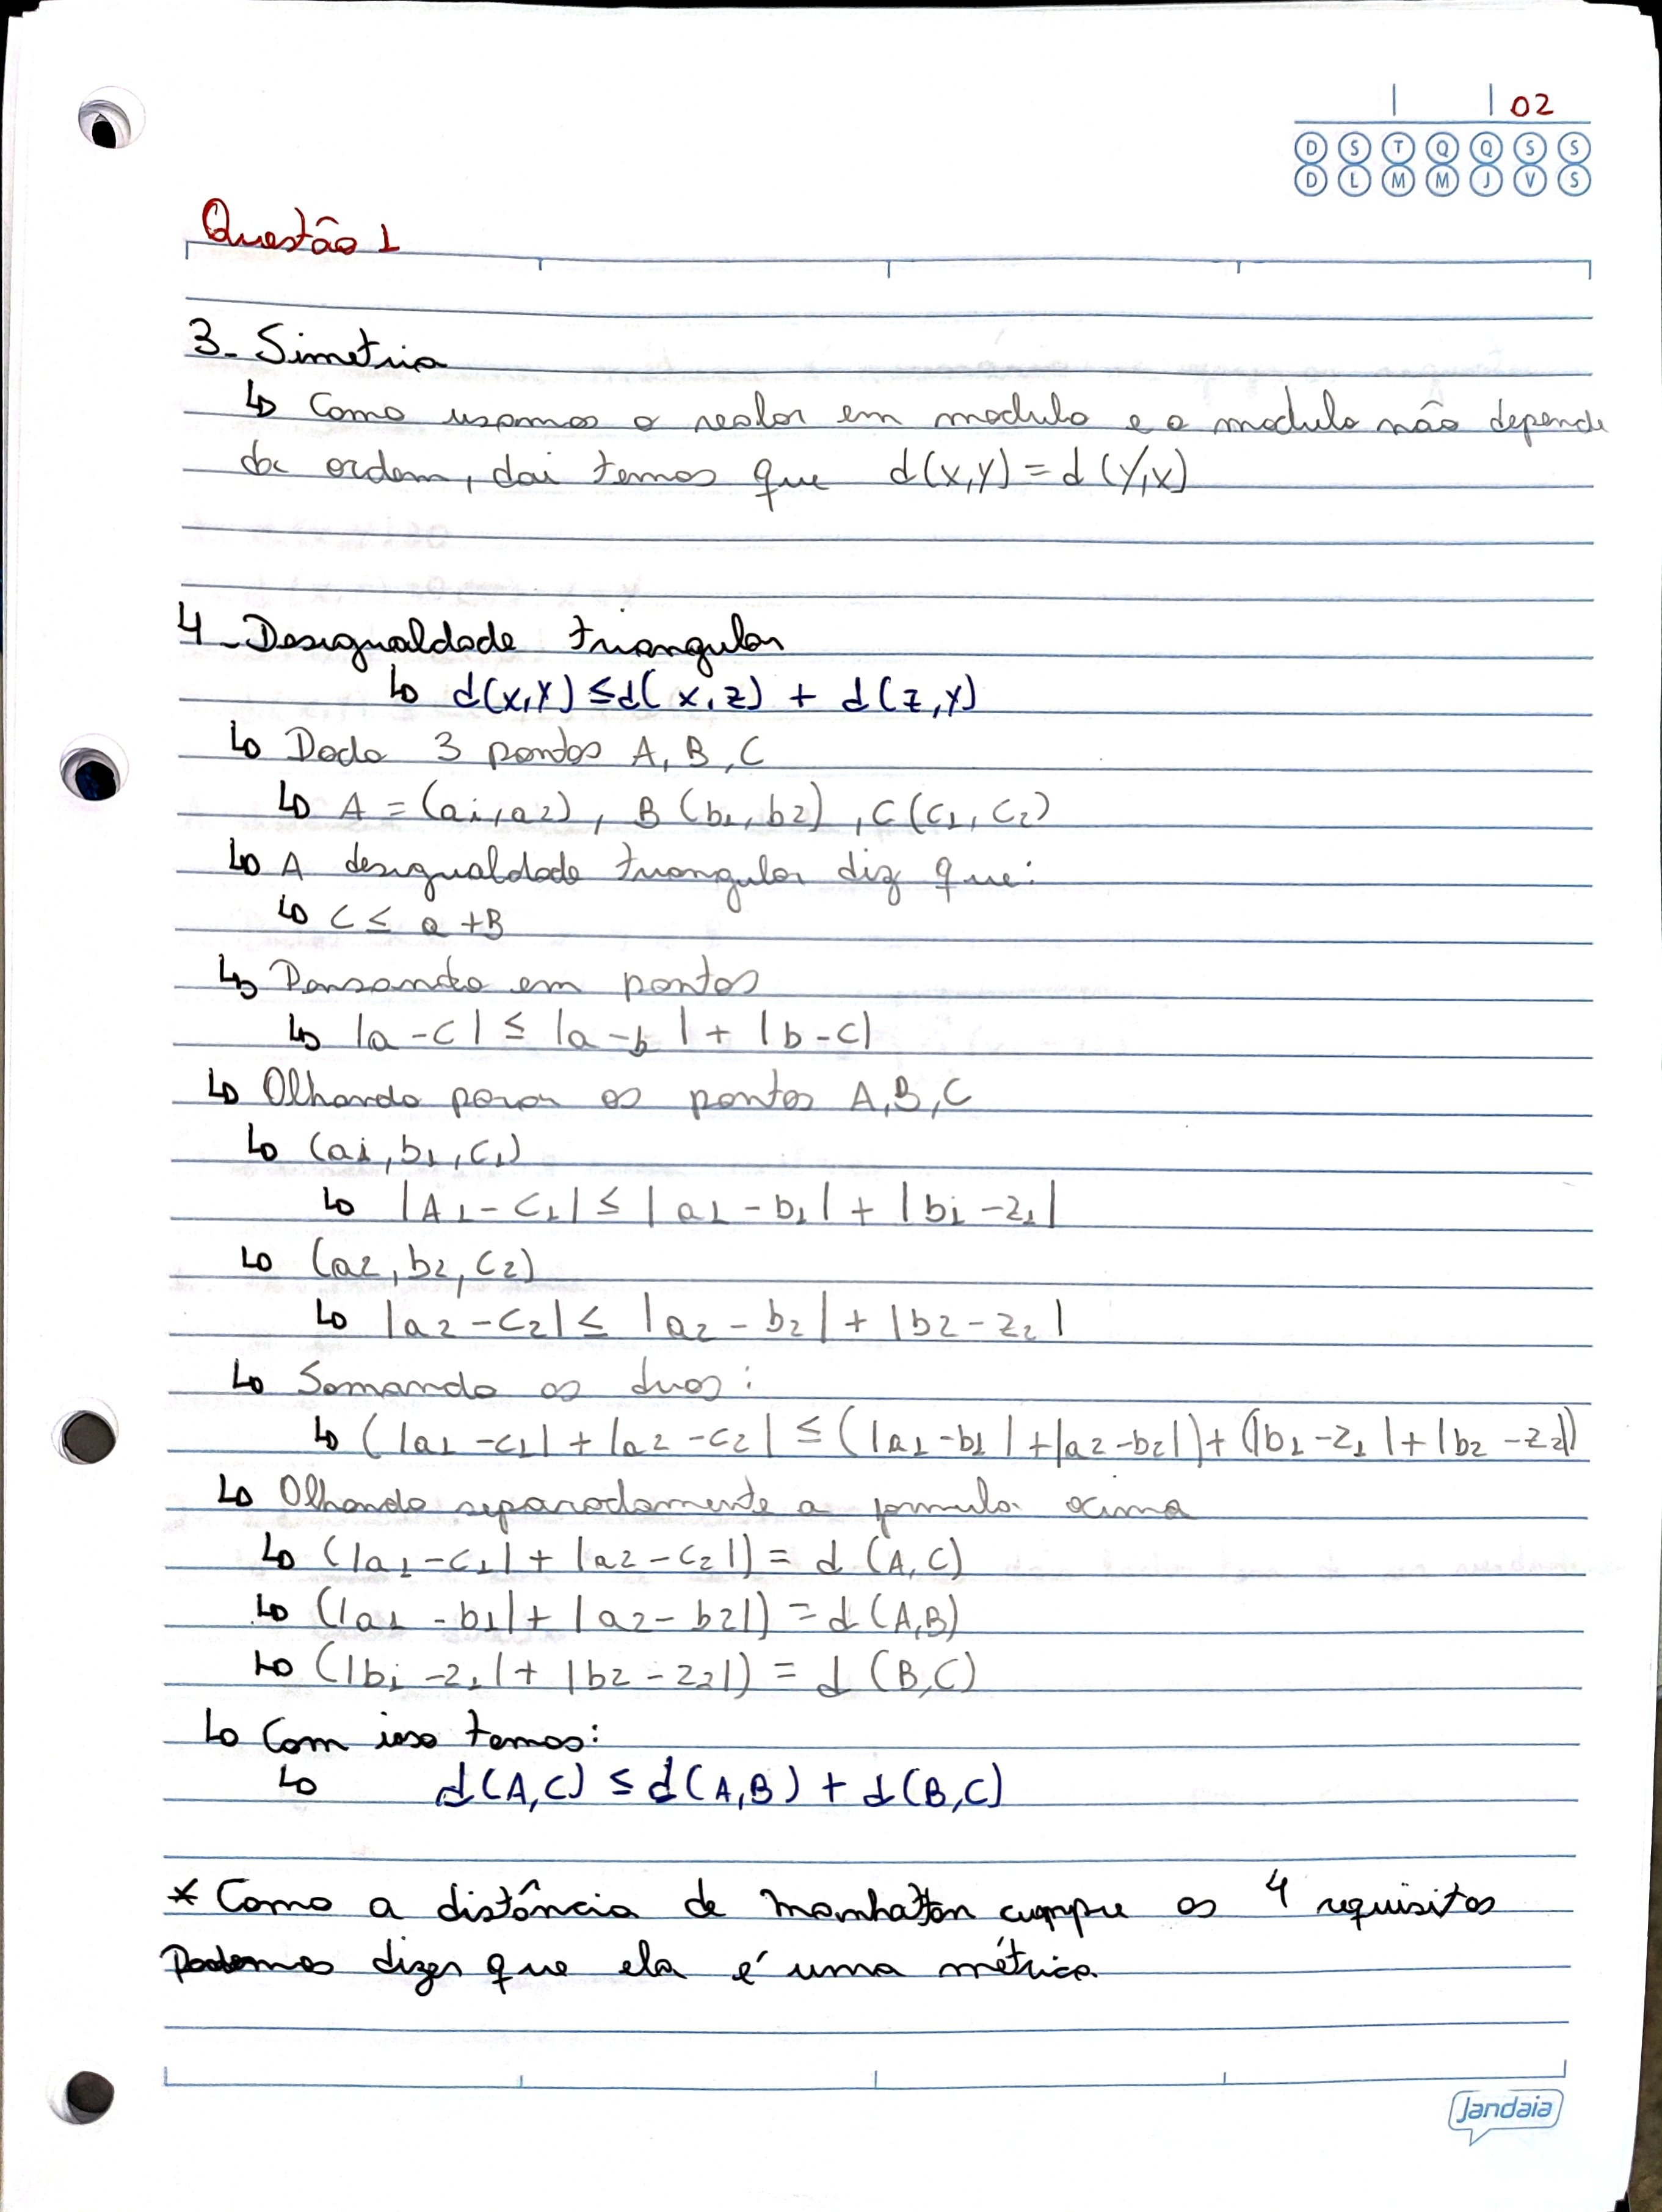 02
D S T Q Q S S
D L M M J V S
Questão 1
3- Simetria
↳ Como usamos o valor em modulo e o modulo não depende
da ordem, dai temos que d(x,y) = d(y,x)
4-Desigualdade triangular
↳ d(x,y) ≤ d(x,z) + d(z,y)
↳ Dado 3 pontos A, B, C
↳ A = (a1,a2), B (b1,b2), C(c1,c2)
↳ A desigualdade triangular diz que:
↳ C ≤ a +B
↳ Pensando em pontos
↳ |a-c| ≤ |a-b| + |b-c|
↳ Olhando para os pontos A,B,C
↳ (a1,b1,c1)
↳ |A1-c1| ≤ |a1-b1| + |b1-z1|
↳ (a2,b2,c2)
↳ |a2-c2| ≤ |a2-b2| + |b2-z2|
↳ Somando os duos:
↳ (|a1-c1| + |a2-c2| ≤ (|a1-b1| + |a2-b2|) + (|b1-z1| + |b2-z2|)
↳ Olhando separadamente a formula acima
↳ (|a1-c1| + |a2-c2|) = d (A,C)
↳ (|a1-b1| + |a2-b2|) = d (A,B)
↳ (|b1-z1| + |b2-z2|) = d (B,C)
↳ Com isso temos:
↳ d(A,C) ≤ d(A,B) + d(B,C)
* Como a distância de manhattan cumpre os 4 requisitos
Podemos dizer que ela é uma métrica
Jandaia